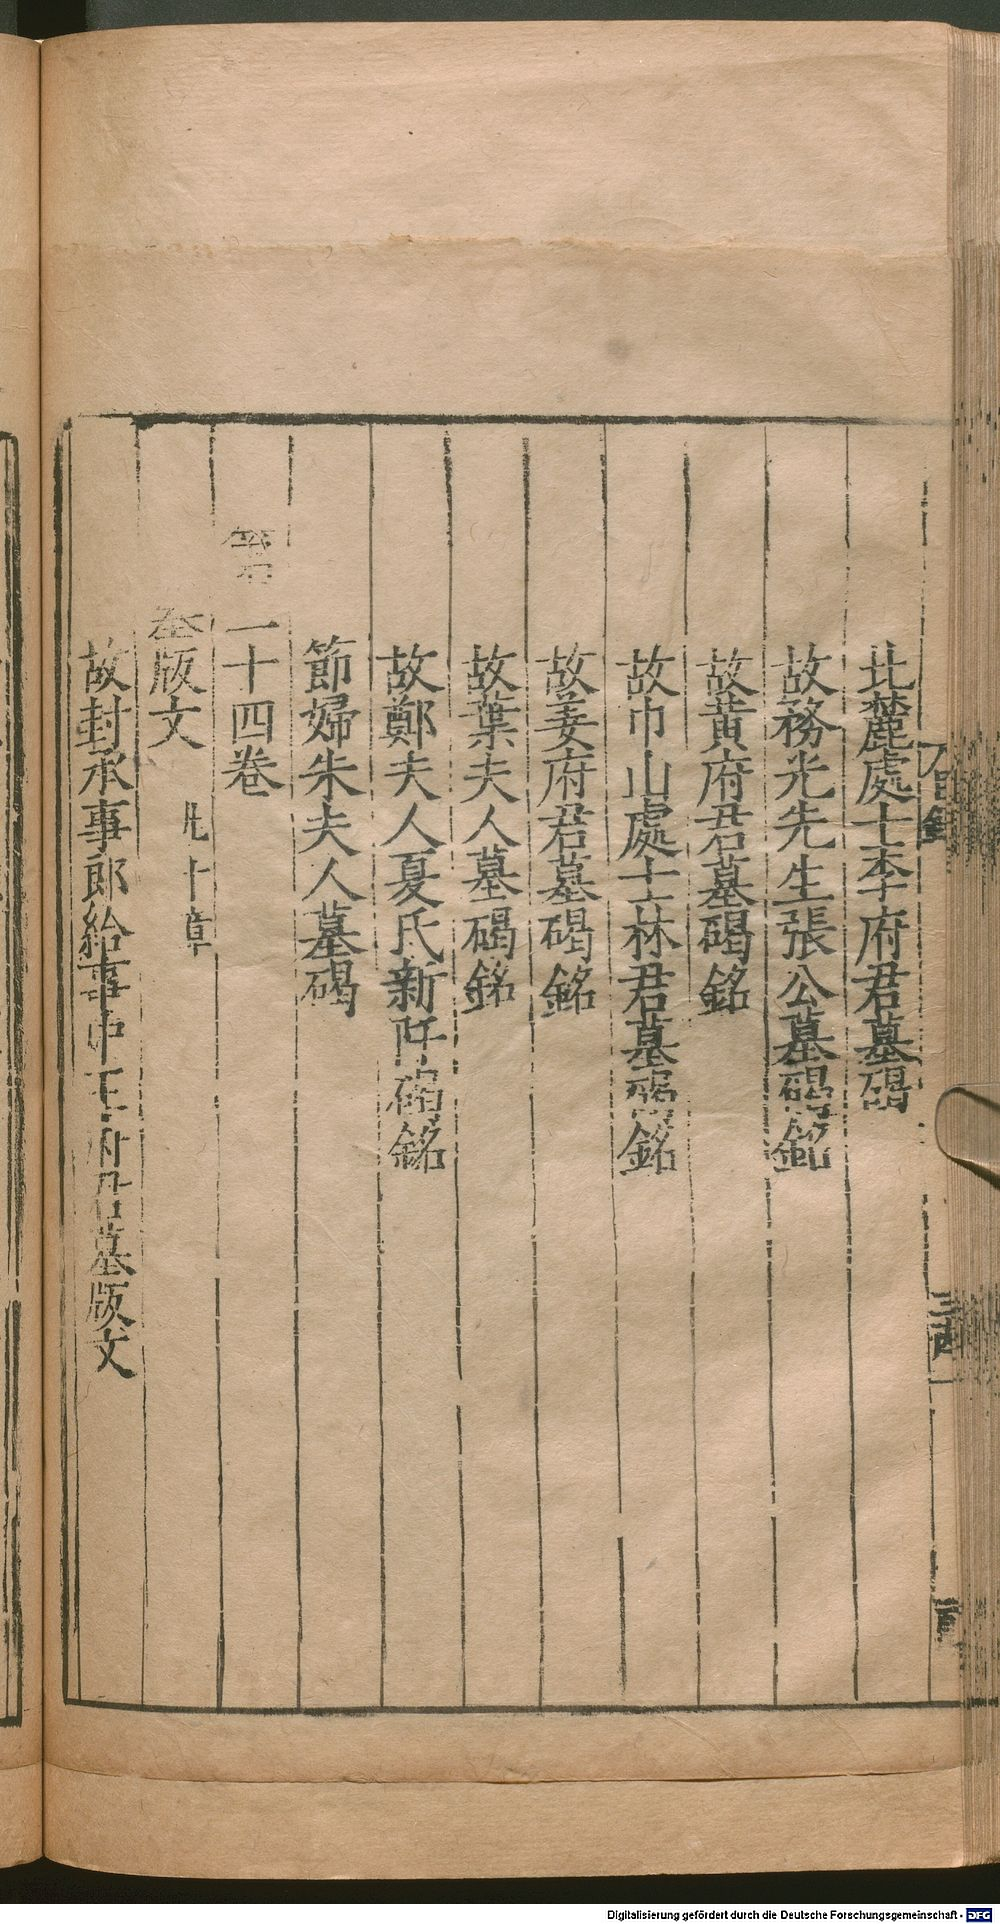 北麓處士李府君墓碣
故務光先生張公墓碣銘
故黃府君墓碣銘
故巾山處士林君墓碣銘
故姜府君墓碣銘
故葉夫人墓碣銘
故鄭夫人夏氏新阡碣銘
節婦朱夫人墓碣
第二十四卷
墓版文 凡十章
故封承事郎給事中王府君墓版文
Digitalisierung gefördert durch die Deutsche Forschungsgemeinschaft - DFG